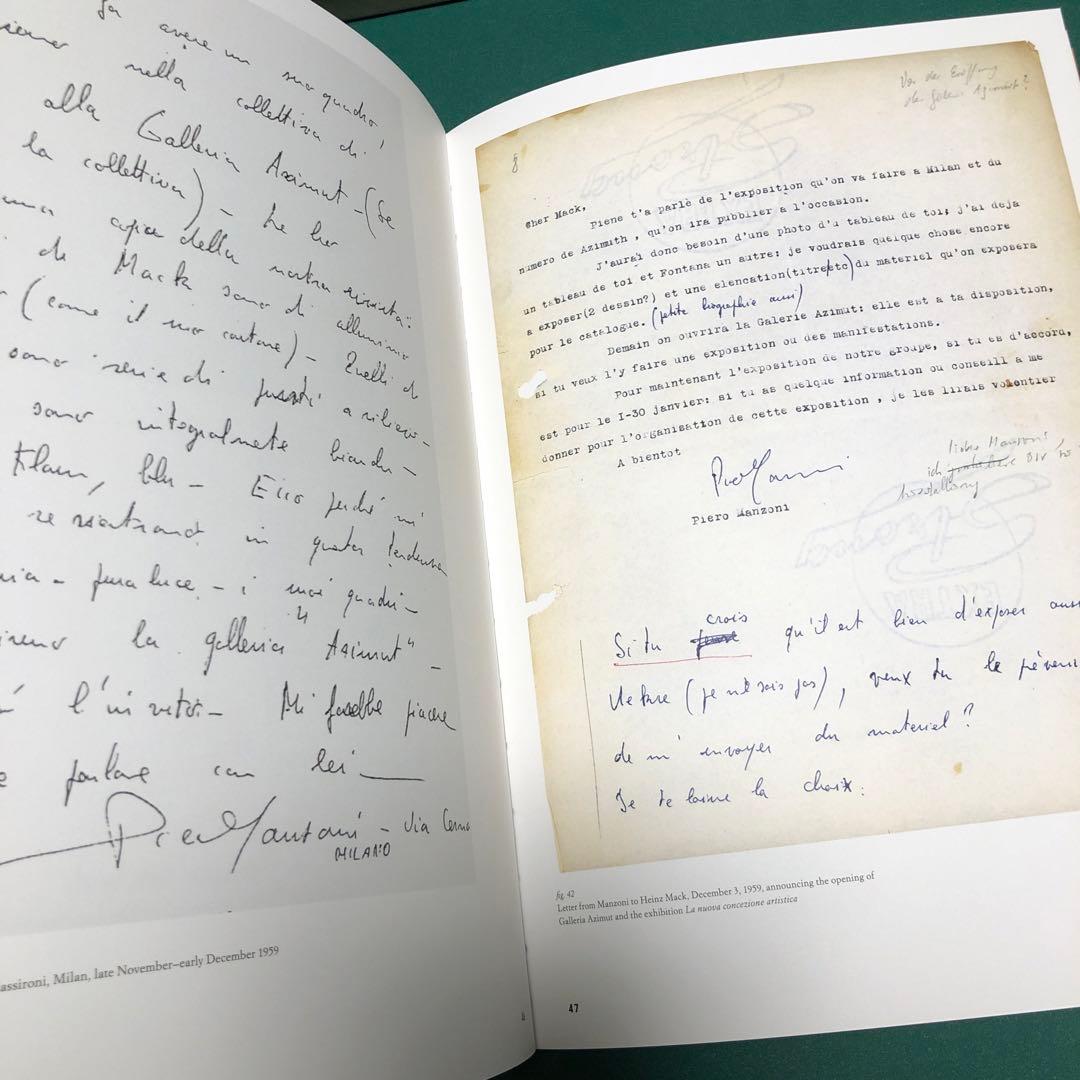 avere un suo quadro!
nella collettiva di
alla Galleria Azimut – (Se
la collettiva) – Le ho
copia della nostra rivista:
di Mack sono di alluminio
(come il suo cartone) – Quelli di
sono serie di punti a rilievo –
sono integralmente bianchi –
Klein, blu – Ecco perché mi
in questa tendenza
pura luce – i miei quadri –
la galleria "Azimut" –
l'invito – Mi farebbe piacere
parlare con lei
Piero Manzoni – Via Cerna
MILANO
assironi, Milan, late November–early December 1959
Von der Eröffnung
der Galerie Azimut?
8
Cher Mack,
Piene t'a parlè de l'exposition qu'on va faire a Milan et du
numero de Azimuth , qu'on ira pubblier a l'occasion.
J'aurai donc besoin d'une photo d'u tableau de toi; j'ai deja
un tableau de toi et Fontana un autre: je voudrais quelque chose encore
a exposer(2 dessin?) et une elencation(titre/etc)du materiel qu'on exposera
pour le catalogue. (petite biographie aussi)
Demain on ouvrira la Galerie Azimut: elle est a ta disposition,
si tu veux l'y faire une exposition ou des manifestations.
Pour maintenant l'exposition de notre groupe, si tu es d'accord,
est pour le I-30 janvier: si tu as quelque information ou conseill a me
donner pour l'organisation de cette exposition , je les lirais volontier
A bientot
Piero Manzoni
Piero Manzoni
lieber Manzoni
ich
Si tu crois qu'il est bien d'exposer aussi
(je ne sais pas), veux tu le préveni
de m'envoyer du materiel?
Je te laisse la choix:
fig. 42
Letter from Manzoni to Heinz Mack, December 3, 1959, announcing the opening of
Galleria Azimut and the exhibition La nuova concezione artistica
47